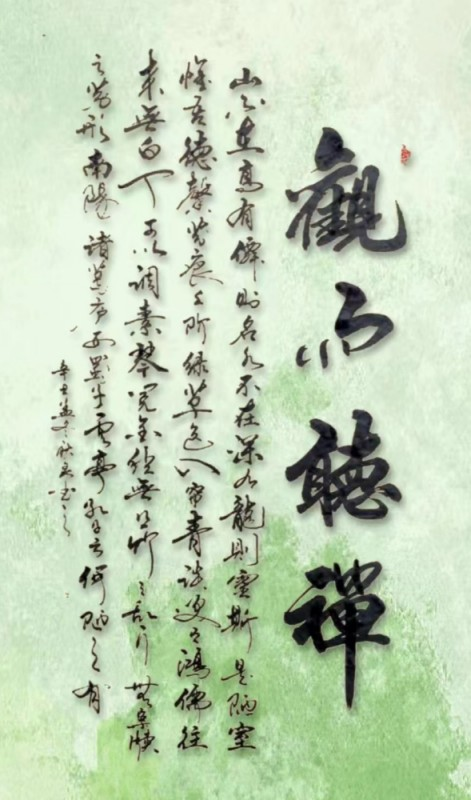 觀心聽禪
山不在高有僊則名水不在深有龍則靈斯是陋室
惟吾德馨苔痕上階綠草色入帘青談笑有鴻儒往
來無白丁可以調素琴閱金經無絲竹之乱耳無案牘
之勞形南陽諸葛廬西蜀子雲亭孔子云何陋之有
辛丑